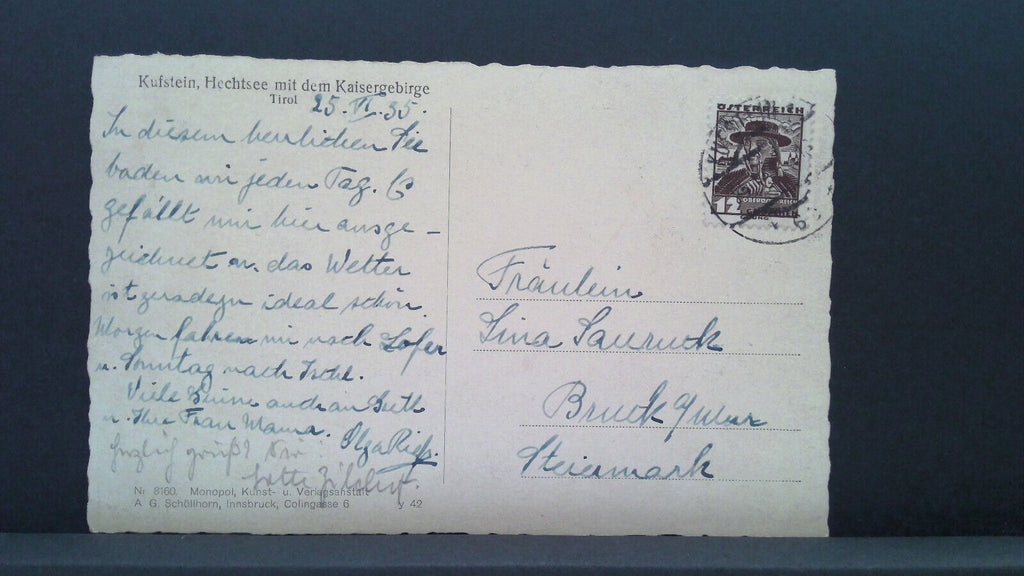 Kufstein, Hechtsee mit dem Kaisergebirge
Tirol
25. VI. 35.
In diesem herrlichen See
baden wir jeden Tag. Es
gefällt mir hier ausge-
zeichnet u. das Wetter
ist geradezu ideal schön.
Morgen fahren wir nach Lofer
u. Sonntag nach Ischl.
Viele auch an
u. Ihre Frau Mama. Olga
herzlich grüßt Sie
Lotte
Nr 8160. Monopol, Kunst- u. Verlagsanstalt
A G. Schöllhorn, Innsbruck, Colingasse 6 y 42
ÖSTERREICH
12
OBERÖSTERREICH
Fräulein
Lina Sauruck
Bruck a/Mur
Steiermark